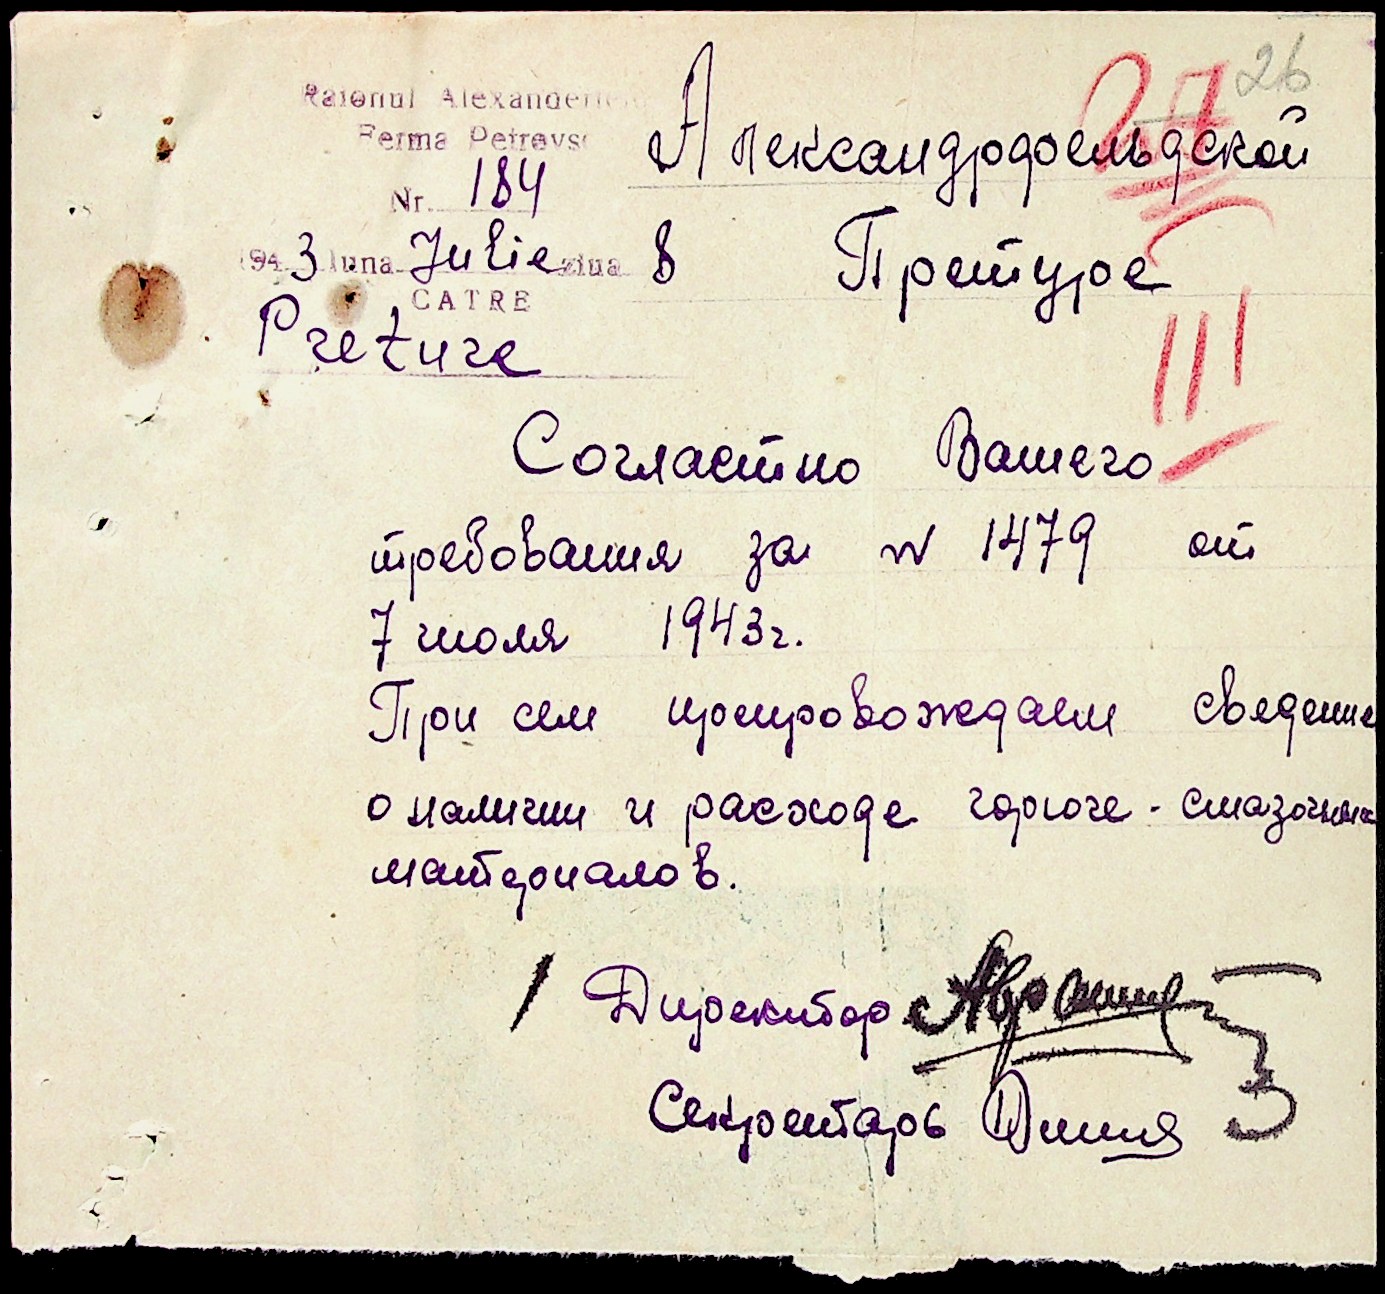 26
27
Raionul Alexanderfeld
Ferma Petrevsc
Nr. 184
1943 luna Julie ziua 8
CATRE
Preture
Александрофельдской
Претуре
III
Согластно Вашего
требования за № 1479 от
7 июля 1943г.
При сем препровождаем сведение
о наличии и расходе горюче-смазочных
материалов.
Директор
Секретарь